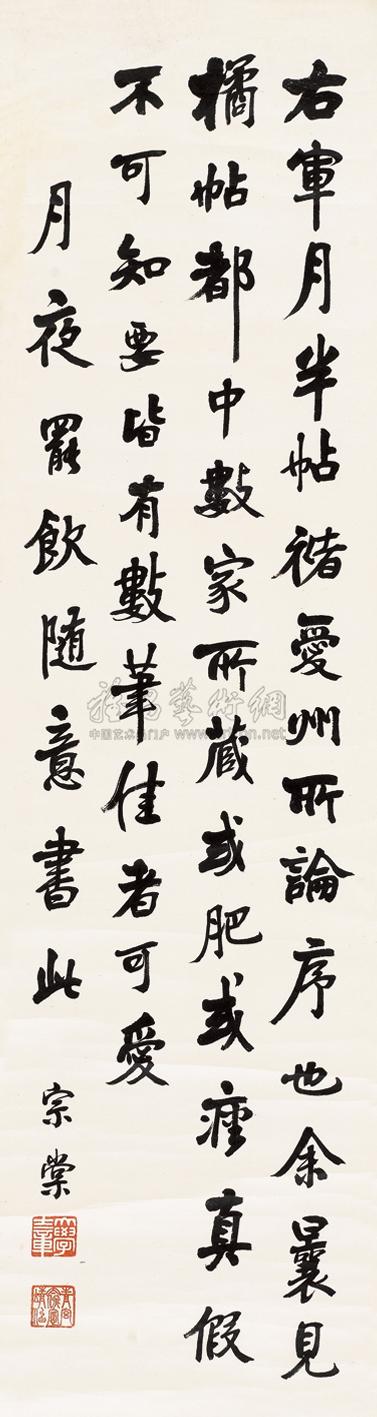 右軍月半帖褚愛州所論序也余曩見
橘帖都中數家所蔵或肥或瘦真假
不可知要皆有數筆佳者可愛
月夜罷飲随意書此
宗棠
雅昌藝術網
中国艺术品门户